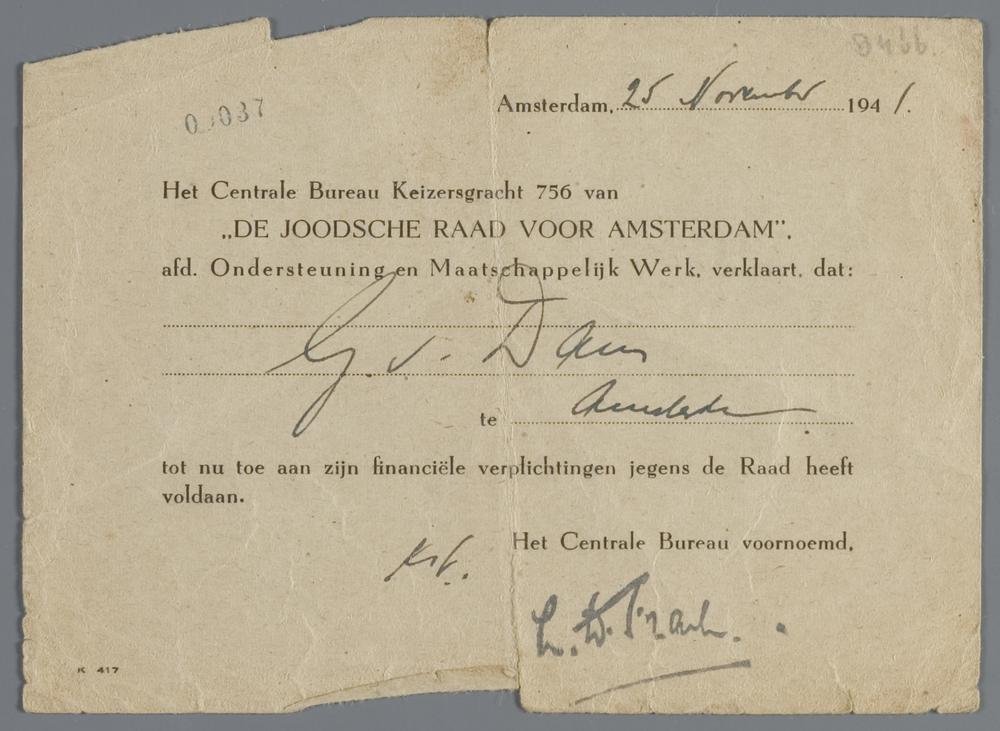 D466.
Amsterdam, 25 November 1941.
Het Centrale Bureau Keizersgracht 756 van
„DE JOODSCHE RAAD VOOR AMSTERDAM”,
afd. Ondersteuning en Maatschappelijk Werk, verklaart, dat:
G. v. Dam
te Amsterdam
tot nu toe aan zijn financiële verplichtingen jegens de Raad heeft
voldaan.
Het Centrale Bureau voornoemd,
K 417